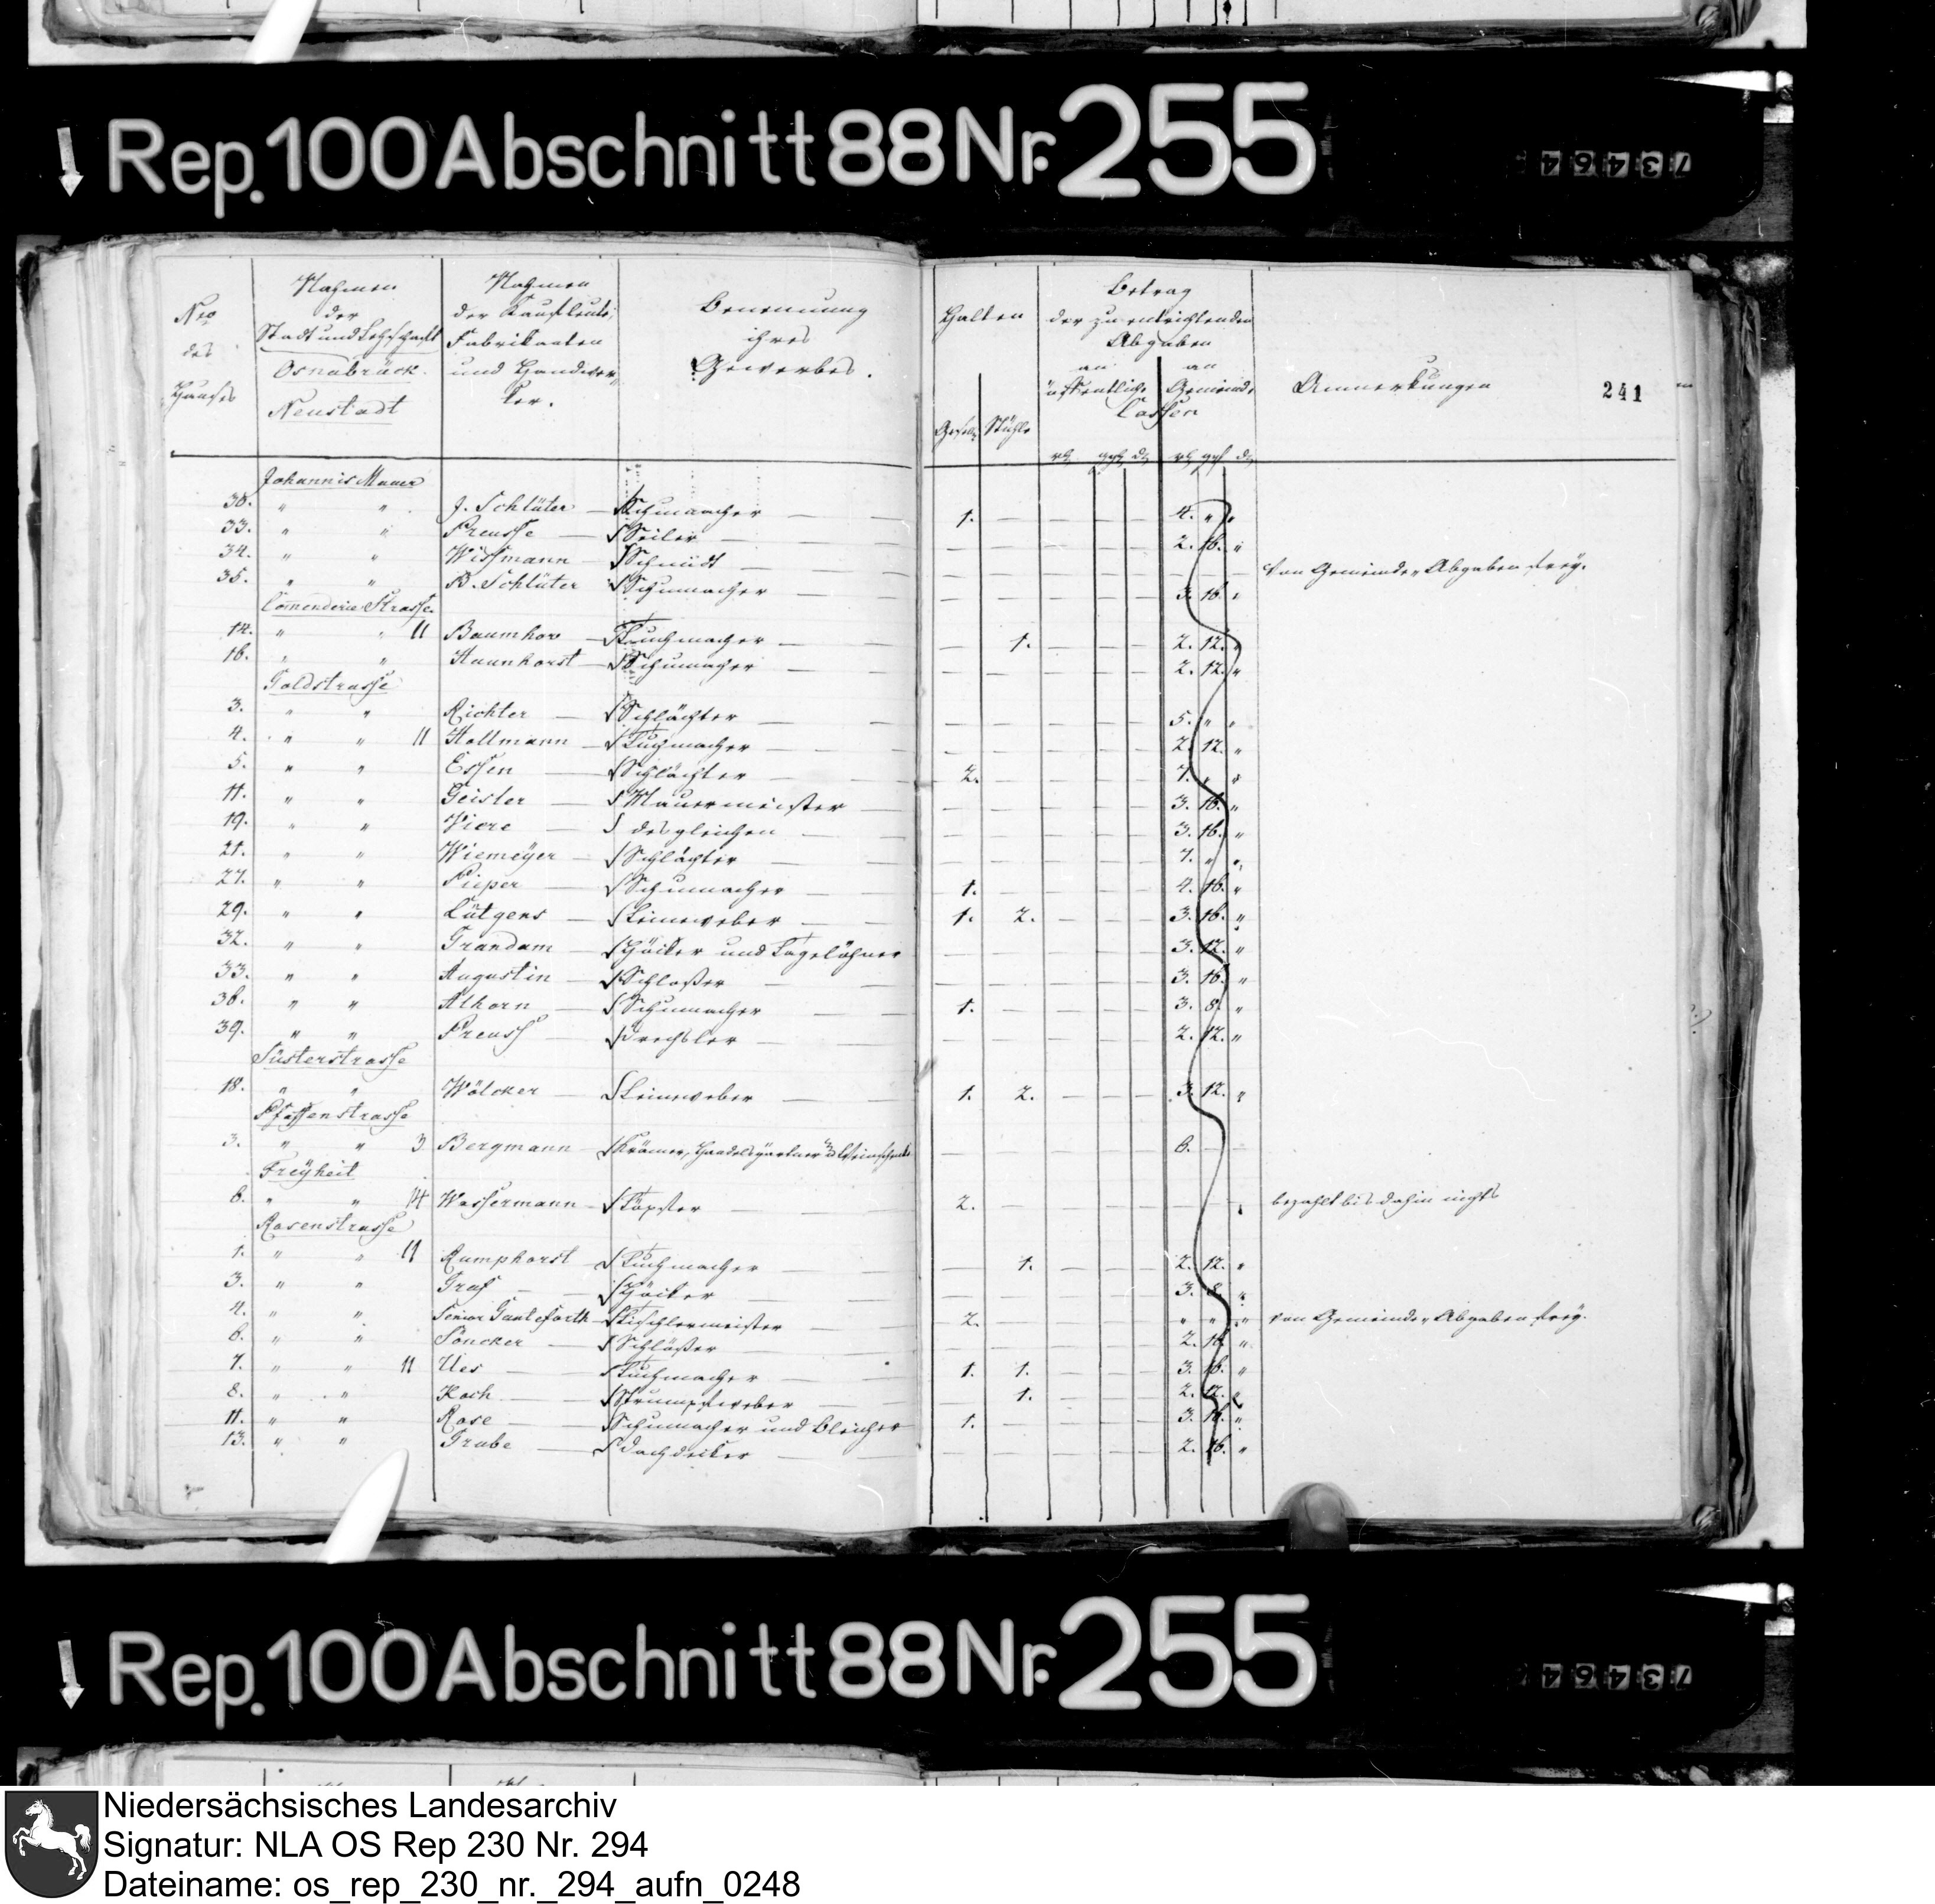 Rep. 100 Abschnitt 88 Nr. 255
73464
Nro des Hauses
Nahmen der Stadt und Lehschaft Osnabrück. Neustadt
Nahmen der Kaufleute, Fabrikanten und Handwerker.
Benennung ihres Gewerbes.
Halten Gesell. Stühle
Betrag der zu entrichtenden Abgaben an öffentliche an Gemeinde Cassen
Anmerkungen
241
Johannis Mauer
30. " " J. Schlüter — Schumacher — 1. — 4. " "
33. " " Preusse — Seiler — 2. 16. "
34. " " Wissmann — Schmidt — von Gemeinde Abgaben frey.
35. " " B. Schlüter Schumacher — 3. 16. "
Comenderie Strasse.
14. " " 11 Baumhor — Tuchmacher — 1. — 2. 12. "
16. " " Haunhorst — Schumacher — 2. 12. "
Goldstrasse
3. " " Richter — Schlächter — 5. " "
4. " " 11 Hollmann — Tuchmacher — 2. 12. "
5. " " Essen — Schlächter — 2. — 7. " "
11. " " Geister — Mauermeister — 3. 16. "
19. " " Viere — desgleichen — 3. 16. "
21. " " Wiemeÿer — Schlächter — 7. " "
27. " " Pieper — Schumacher — 1. — 4. 16. "
29. " " Lütgens — Leineweber — 1. 2. — 3. 16. "
32. " " Grandam — Höcker und Tagelöhner — 3. 12. "
33. " " Augustin — Schloßer — 3. 16. "
36. " " Athorn — Schumacher — 1. — 3. 8. "
39. " " Preuss — Drechsler — 2. 12. "
Süsterstrasse
18. " " Wölcker — Leineweber — 1. 2. — 3. 12. "
Pfaffenstrasse
3. " " 3 Bergmann — Krämer, Handelsgärtner und Weinschenk — 6. —
Freÿheit
6. " " 14 Wassermann — Töpfer — 2. — bezahlt bis dahin nichts
Rosenstrasse
1. " " 11 Rumphorst — Tuchmacher — 1. — 2. 12. "
3. " " Graf — Höcker — 3. 8. "
4. " " Senior Gantefoarth — Tischlermeister — 2. — " " " von Gemeinde Abgaben frey.
6. " " Söncker — Schlößer — 2. 16. "
7. " " 11 Ues — Tuchmacher — 1. 1. — 3. 16. "
8. " " Koch — Strumpfweber — 1. — 2. 12. "
11. " " Rose — Schumacher und Bleicher — 1. — 3. 16. "
13. " " Grabe — Dachdecker — 2. 16. "
Rep. 100 Abschnitt 88 Nr. 255
73464
Niedersächsisches Landesarchiv
Signatur: NLA OS Rep 230 Nr. 294
Dateiname: os_rep_230_nr._294_aufn_0248